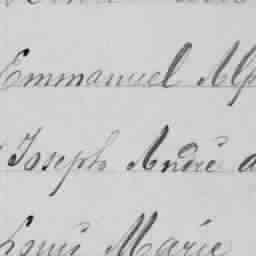 Emmanuel Alp
Joseph André a
Louis Marie